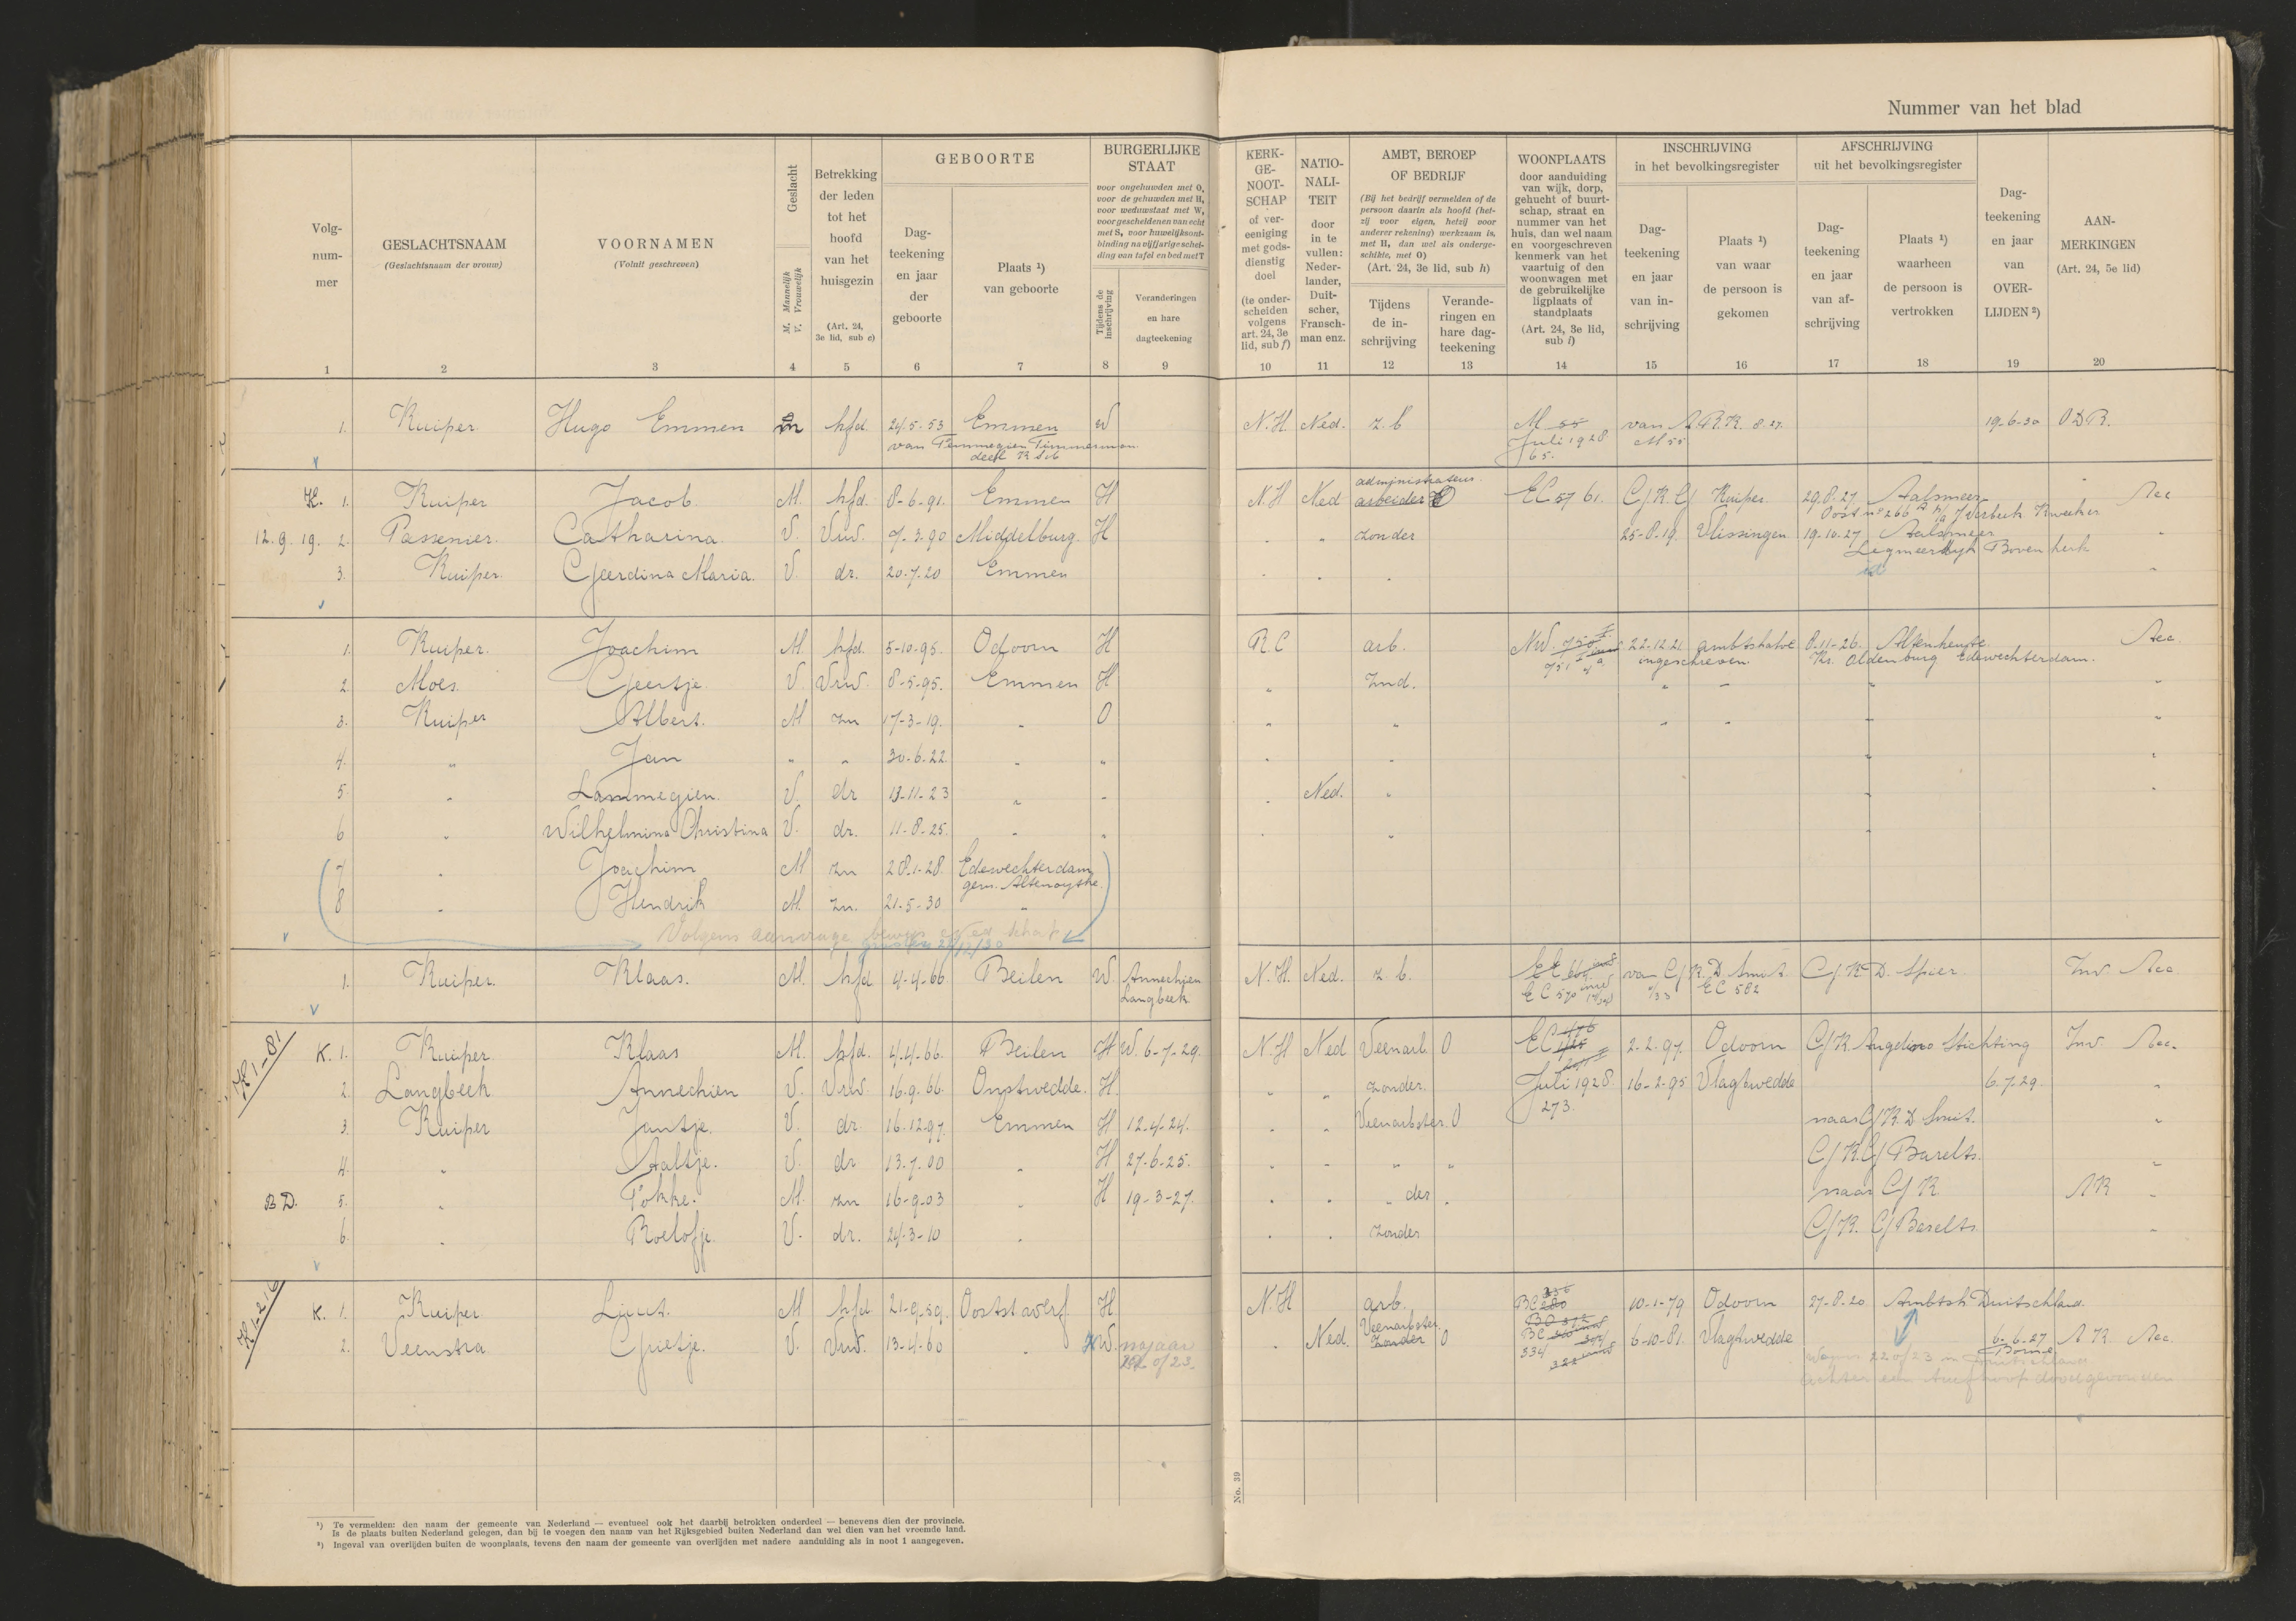 Nummer van het blad
Volg-
num-
mer
GESLACHTSNAAM
(Geslachtsnaam der vrouw)
VOORNAMEN
(Voluit geschreven)
Geslacht
M. Mannelijk
V. Vrouwelijk
Betrekking
der leden
tot het
hoofd
van het
huisgezin
(Art. 24,
3e lid, sub e)
GEBOORTE
Dag-
teekening
en jaar
der
geboorte
Plaats ¹)
van geboorte
BURGERLIJKE
STAAT
voor ongehuwden met O,
voor de gehuwden met H,
voor weduwstaat met W,
voor gescheidenen van echt
met S, voor huwelijksont-
binding na vijfjarige schei-
ding van tafel en bed met T
Tijdens de
inschrijving
Veranderingen
en hare
dagteekening
KERK-
GE-
NOOT-
SCHAP
of ver-
eeniging
met gods-
dienstig
doel
(te onder-
scheiden
volgens
art. 24, 3e
lid, sub f)
NATIO-
NALI-
TEIT
door
in te
vullen:
Neder-
lander,
Duit-
scher,
Fransch-
man enz.
AMBT, BEROEP
OF BEDRIJF
(Bij het bedrijf vermelden of de
persoon daarin als hoofd (het-
zij voor eigen, hetzij voor
anderer rekening) werkzaam is,
met H, dan wel als onderge-
schikte, met O)
(Art. 24, 3e lid, sub h)
Tijdens
de in-
schrijving
Verande-
ringen en
hare dag-
teekening
WOONPLAATS
door aanduiding
van wijk, dorp,
gehucht of buurt-
schap, straat en
nummer van het
huis, dan wel naam
en voorgeschreven
kenmerk van het
vaartuig of den
woonwagen met
de gebruikelijke
ligplaats of
standplaats
(Art. 24, 3e lid,
sub i)
INSCHRIJVING
in het bevolkingsregister
Dag-
teekening
en jaar
van in-
schrijving
Plaats ¹)
van waar
de persoon is
gekomen
AFSCHRIJVING
uit het bevolkingsregister
Dag-
teekening
en jaar
van af-
schrijving
Plaats ¹)
waarheen
de persoon is
vertrokken
Dag-
teekening
en jaar
van
OVER-
LIJDEN ²)
AAN-
MERKINGEN
(Art. 24, 5e lid)
1 2 3 4 5 6 7 8 9 10 11 12 13 14 15 16 17 18 19 20
1. Kuiper. Hugo Emmen m hfd 24.5.53 Emmen W N.H. Ned. z.b M 55 van 8.27. 19-6-30 ODR.
van Temmegien Timmerman Juli 1928 M 55
deel K 65.
K. 1. Kuiper Jacob. M. hfd. 8-6-91. Emmen H N.H Ned administrateur
arbeider O EC 57 61. G.K.G Kuiper. 29.8.27 Aalsmeer Acc
Oost no 266 Kweeker
12.9.19. 2. Passenier. Catharina. V. Vrw. 7.3.90 Middelburg. H " zonder 25-8-19. Vlissingen 19-10-27 Aalsmeer "
Legmeerdijk Bovenkerk
3. Kuiper. Geerdina Maria. V. dr. 20-7-20 Emmen
1. Kuiper. Joachim M. hfd. 5-10-95. Odoorn H R.C arb. NW. 750 22.12.21 ambtshalve 8-11-26. Altenhunte Acc.
751 ingeschreven. Kr. Oldenburg Edewechterdam.
2. Moes. Geertje. V. Vrw. 8-5-95. Emmen H " Znd. " "
3. Kuiper Albert. M zn 17-3-19. " O " "
4. " Jan " " 30-6-22. " "
5. " Lammegien. V. dr 13-11-23 " " Ned. "
6 " Wilhelmina Christina V. dr. 11-8-25. " "
7 " Joachim M zn 28-1-28. Edewechterdam
gem. Altenoythe.
8 " Hendrik M. zn. 21-5-30 "
Volgens aanvrage bewijs v. Ned. schap
1. Kuiper. Klaas. M. hfd 4-4-66 Beilen W. Annechien N.H. Ned. z.b. EC van G.K.D. Smit. G.K.D. Spier. Inv Acc.
Langbeek EC 570 EC 582
K 1-81
K. 1. Kuiper Klaas M. hfd. 4-4-66. Beilen H W 6-7-29. N.H Ned Veenarb. O EC 2-2-97. Odoorn G.K. Angelino Stichting Inv. Acc.
2. Langbeek Annechien V. Vrw. 16.9.66. Onstwedde. H " " zonder. Juli 1928. 16-2-95 Vlagtwedde 6.7.29. "
3. Kuiper Jantje. V. dr. 16.12.97. Emmen H 12.4.24. " " Veenarbster. O 273. naar G.K.D. Smit. "
4. " Aaltje. V. dr. 13.7.00 " H 27-6-25. G.K.G Barelts. "
BD. 5. " Fokke. M. zn 16-9-03 " H 19-3-27. " der naar G.K. AK "
6. " Roelofje. V. dr. 24-3-10 " zonder G.K. G Barelts. "
K1-216
K. 1. Kuiper. M hfd 21-9-59. H. N.H arb. BC 280 10-1-79 Odoorn 27-8-20 Ambtsh. Duitschland.
2. Veenstra. Grietje. V. Vrw. 13-4-60 " W. najaar " Ned. Veenarbster.
zonder O BC 334 6-10-81. Vlagtwedde 6-6-27 AK. Acc.
22 of 23. 322 Borne
22 of 23 in Duitschland
achter een dood gevonden
No. 39
¹) Te vermelden: den naam der gemeente van Nederland — eventueel ook het daarbij betrokken onderdeel — benevens dien der provincie.
Is de plaats buiten Nederland gelegen, dan bij te voegen den naam van het Rijksgebied buiten Nederland dan wel dien van het vreemde land.
²) Ingeval van overlijden buiten de woonplaats, tevens den naam der gemeente van overlijden met nadere aanduiding als in noot 1 aangegeven.